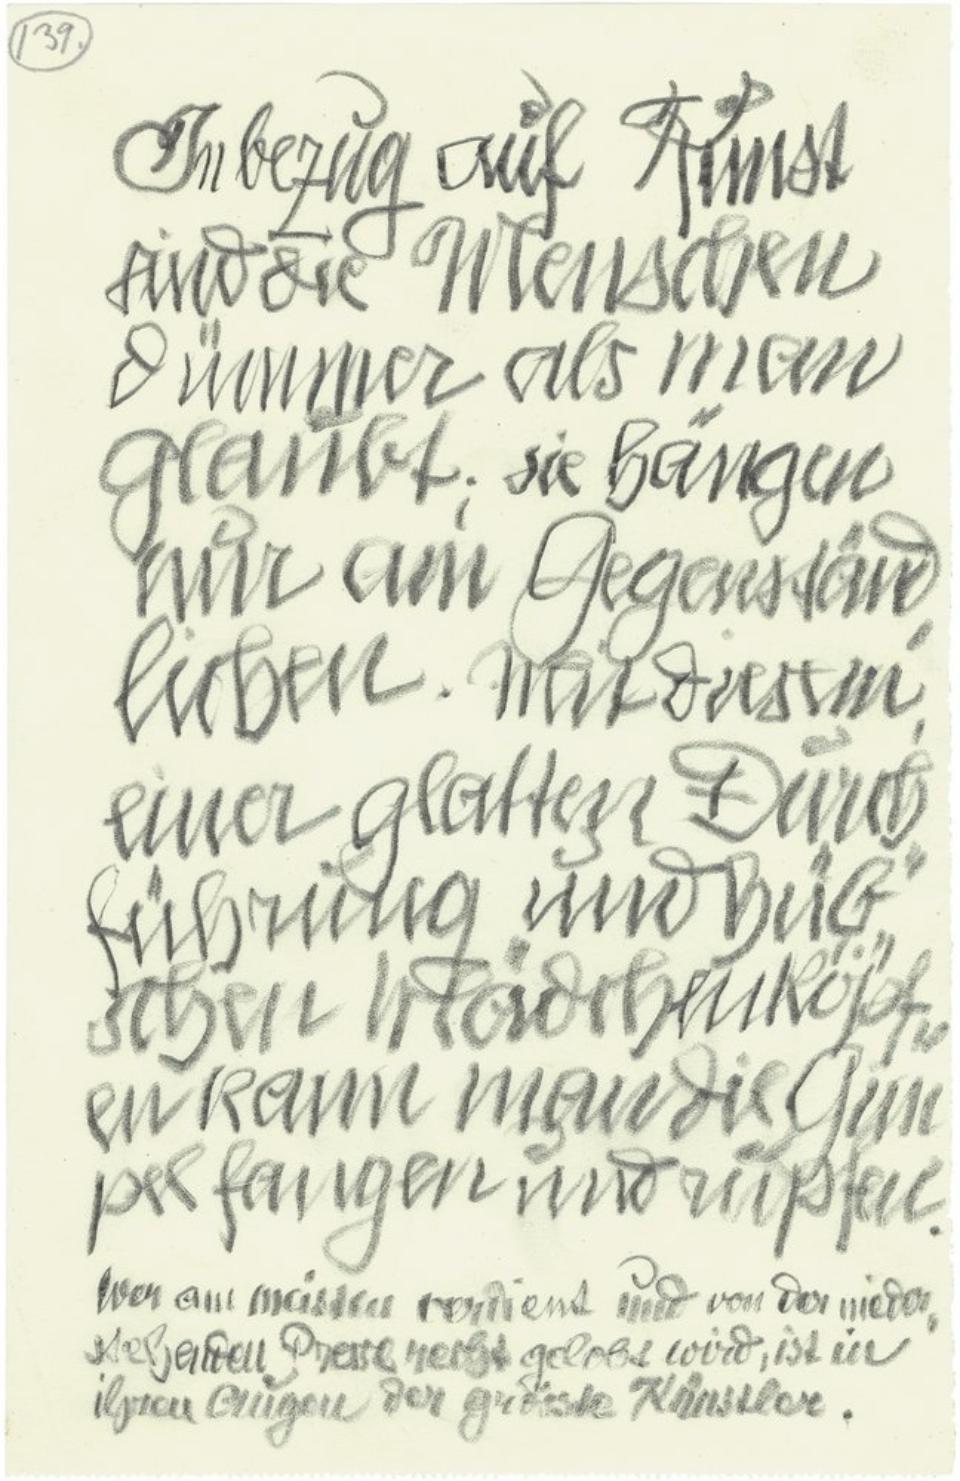 139.
In bezug auf Kunst
sind die Menschen
dümmer als man
glaubt; sie hängen
nur am Gegenständ
lichen. Mit diesem,
einer glatten Durch
führung und hüb
schen Mädchenköpf
en kann man die Gim
pel fangen und rupfen.
Wer am meisten verdient und von der nieder
stehenden Presse recht gelobt wird, ist in
ihren Augen der grösste Künstler.